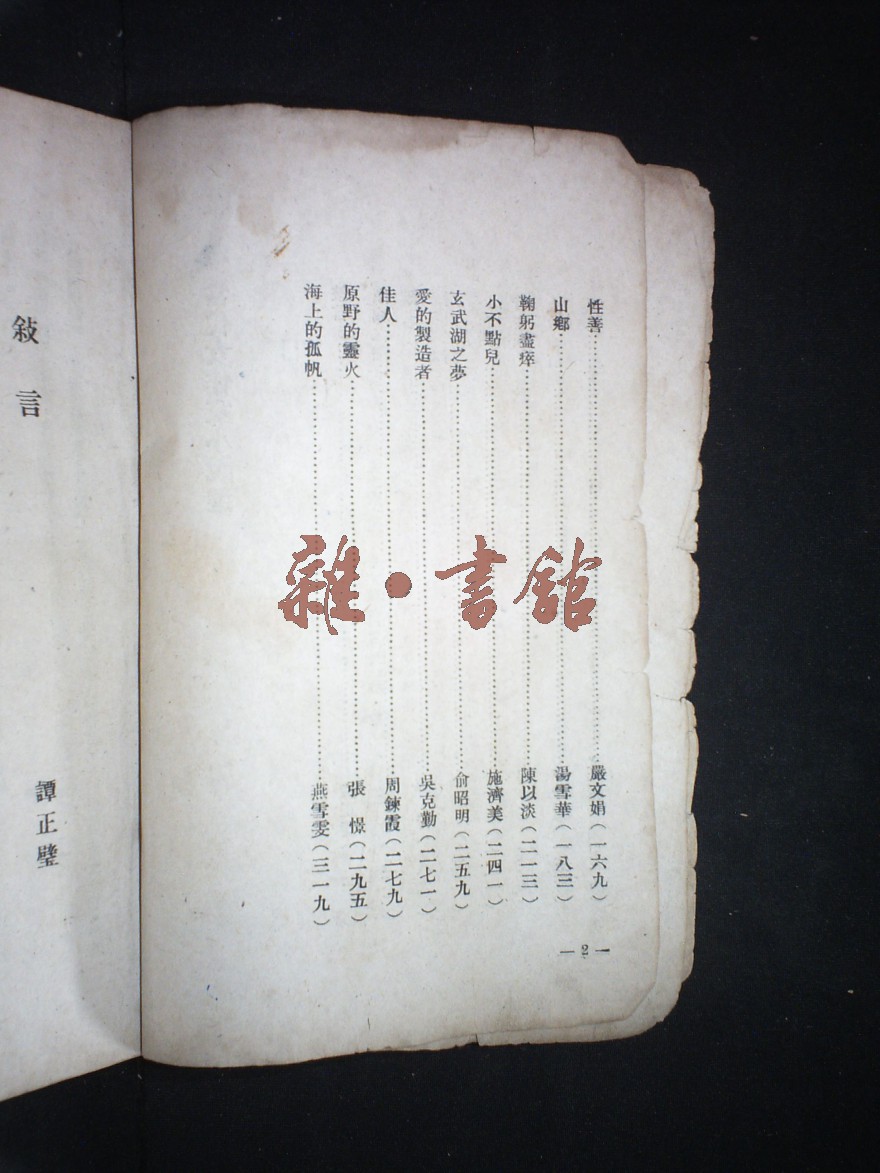 性善……嚴文娟(一六九)
山鄉……湯雪華(一八三)
鞠躬盡瘁……陳以淡(二一三)
小不點兒……施濟美(二四一)
玄武湖之夢……俞昭明(二五九)
愛的製造者……吳克勤(二七一)
佳人……周鍊霞(二七九)
原野的靈火……張憬(二九五)
海上的孤帆……燕雪雯(三一九)
—2—
敍言
譚正璧
雜·書館